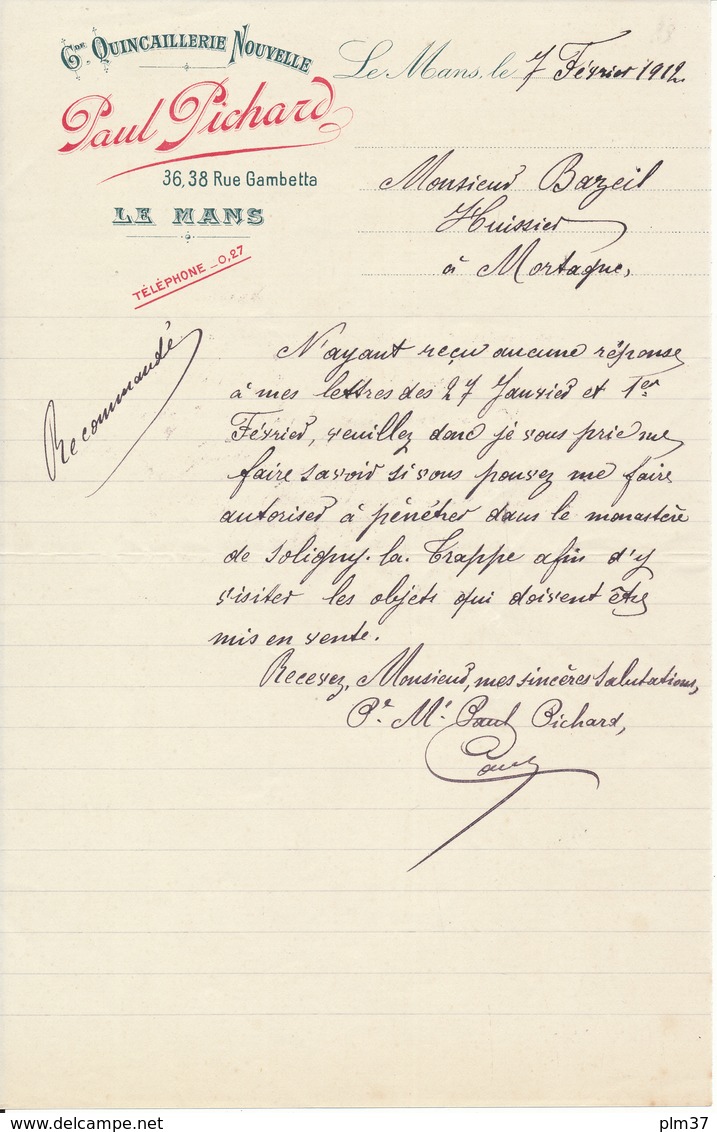 Gde Quincaillerie Nouvelle
Paul Pichard
36,38 Rue Gambetta
LE MANS
TÉLÉPHONE _ 0,27
Le Mans, le 7 Février 1912
Monsieur Bazeil
Huissier
à Mortagne,
Recommandé
N'ayant reçu aucune réponse
à mes lettres des 27 Janvier et 1er
Février, veuillez donc je vous prie me
faire savoir si vous pouvez me faire
autoriser à pénétrer dans le monastère
de Soligny-la-Trappe afin d'y
visiter les objets qui doivent être
mis en vente.
Recevez, Monsieur, mes sincères salutations,
Pr Mr Paul Pichard,
delcampe.net
plm37